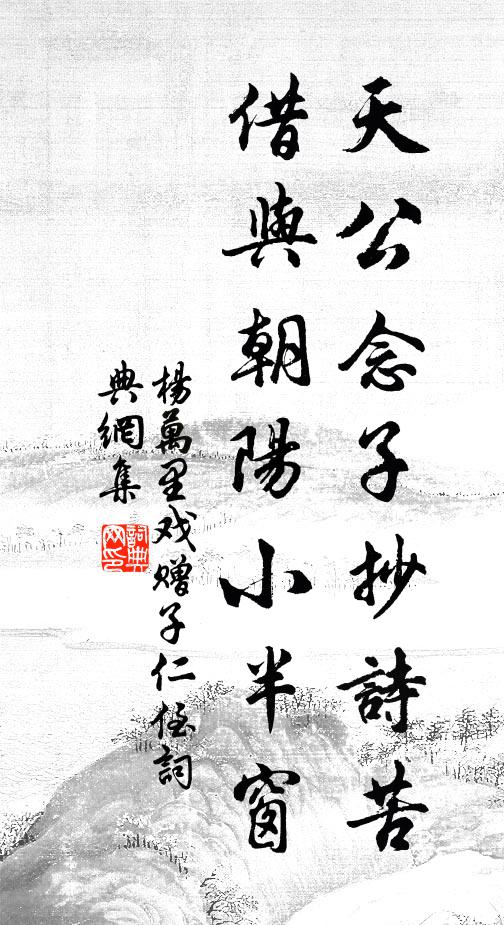 天公念子抄詩苦
借與朝陽小半窗
楊萬里戏贈子仁侄詞
典網集
詞典
网印